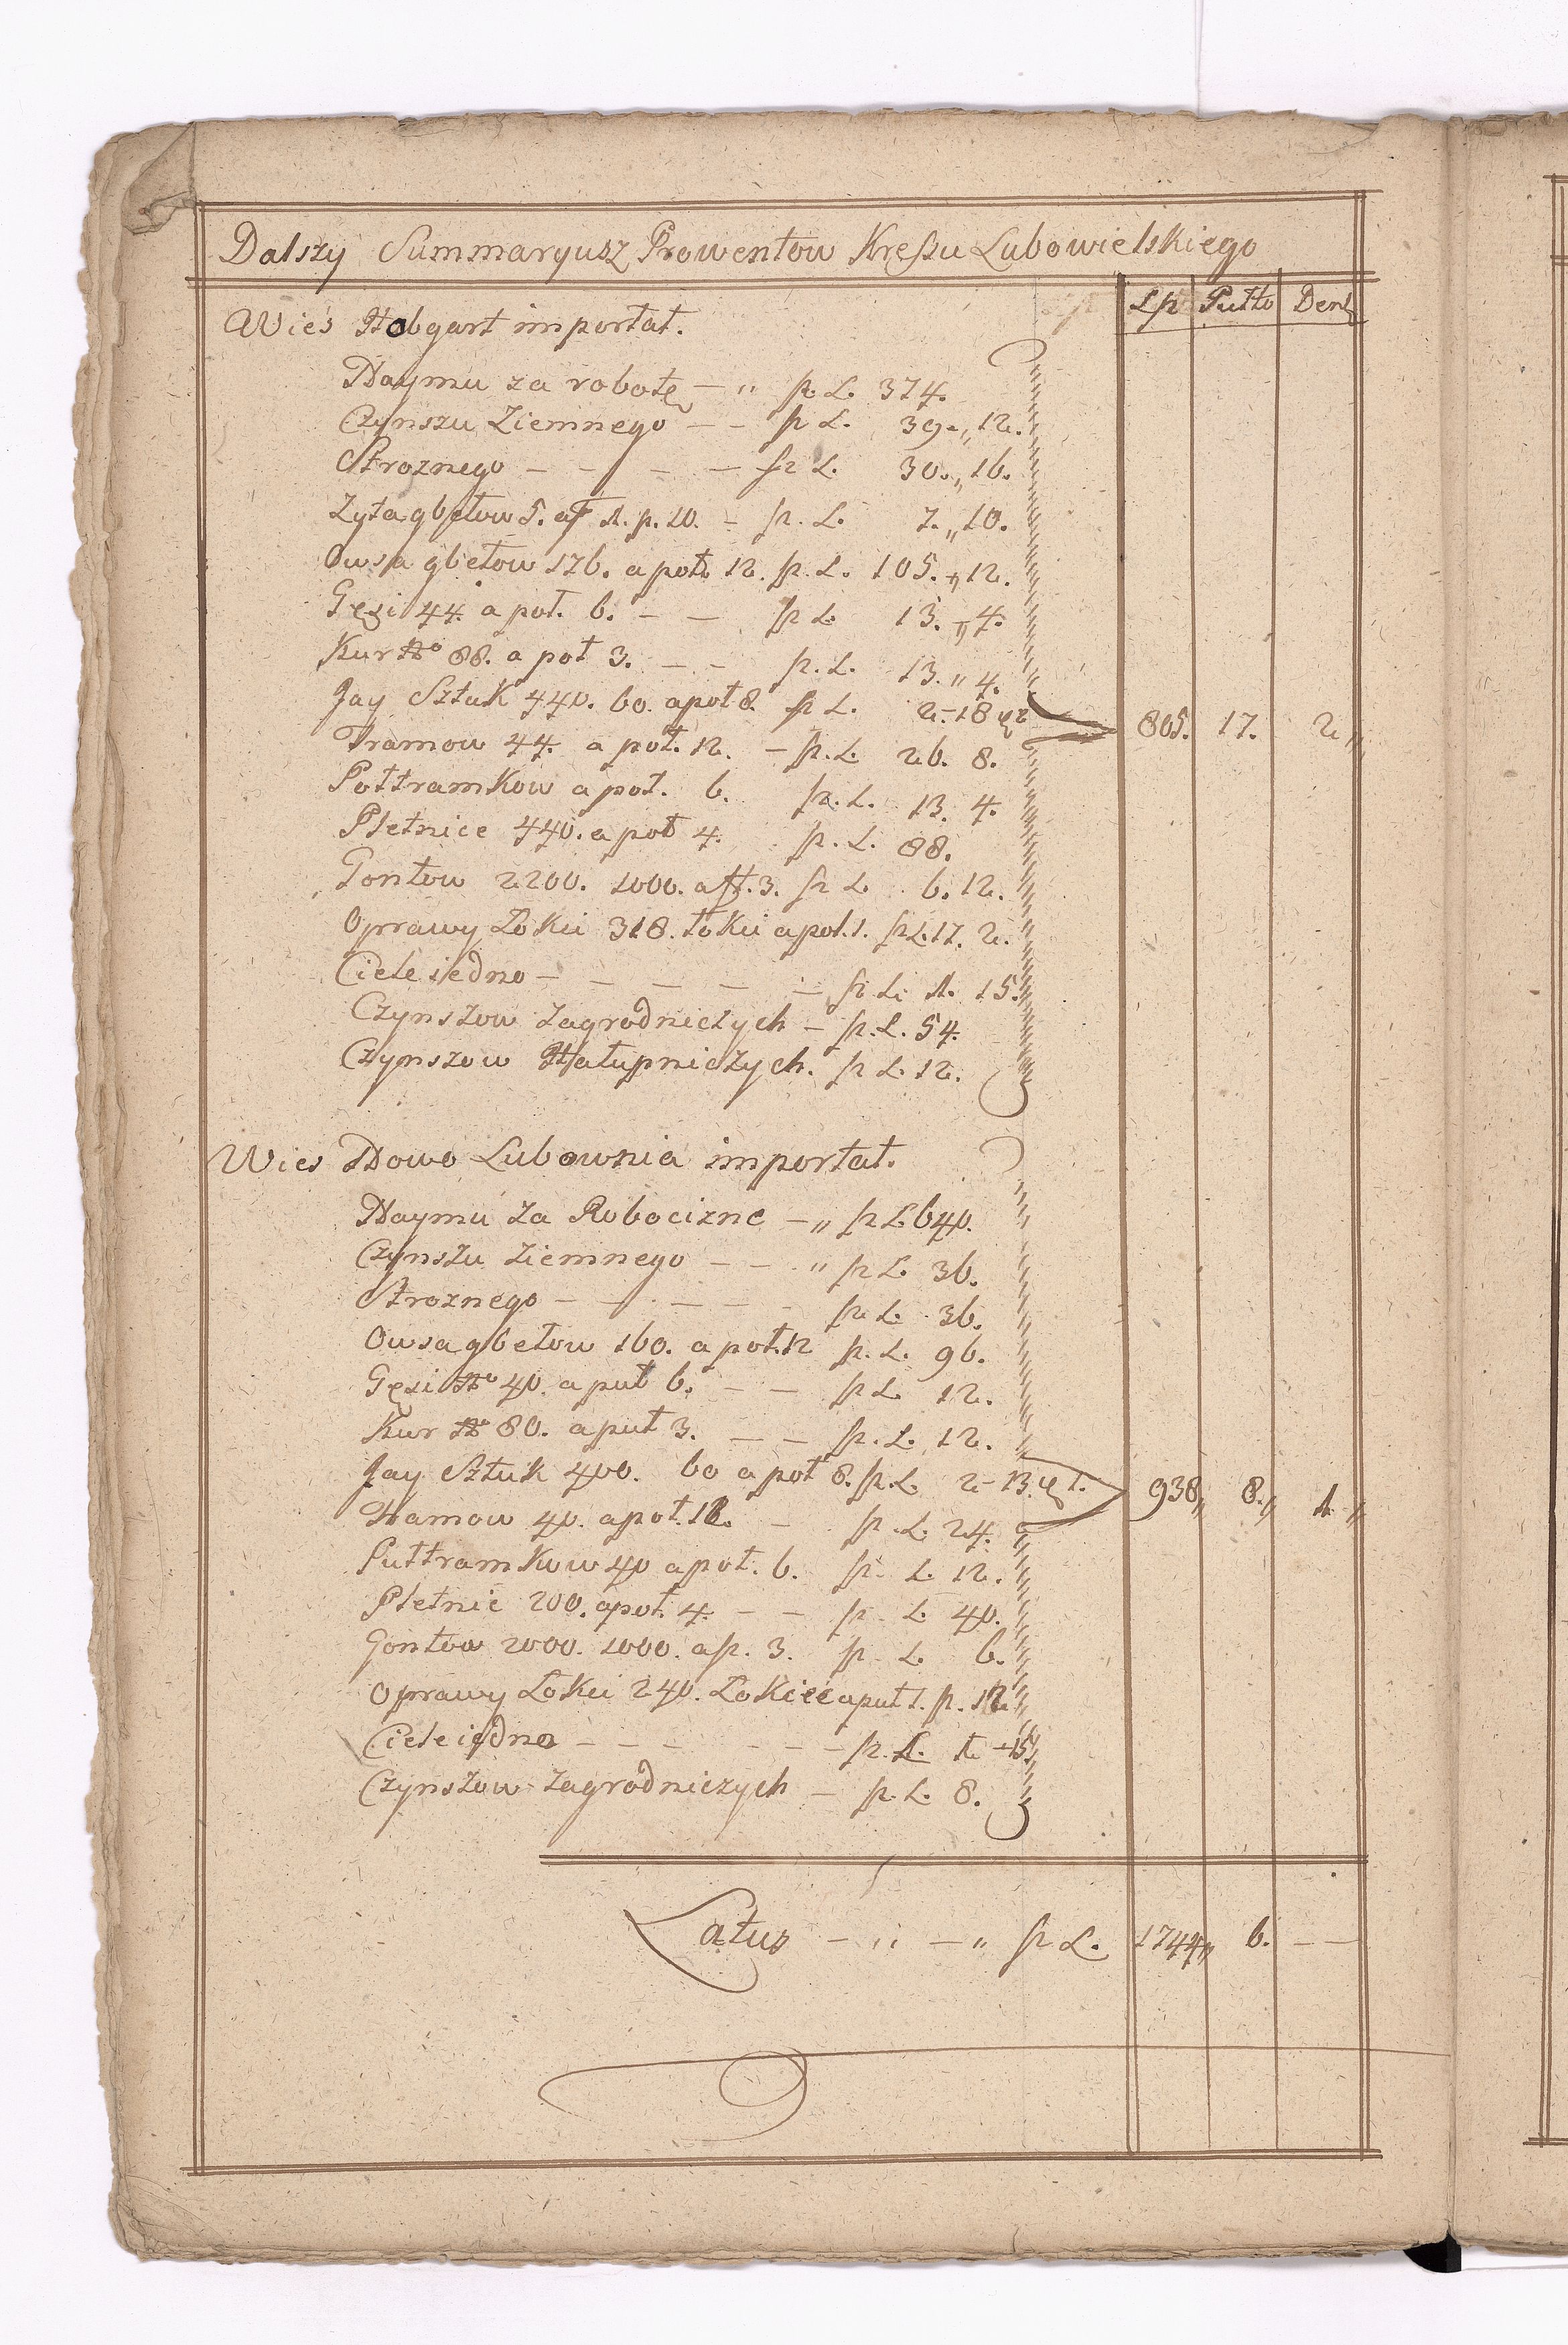 Dalszy Summaryusz Prowentow Kreßu Lubowielskiego
Lp Putto Den
Wies Hobgart importat.
Naymu za robotę — " p. L. 374.
Czynszu Ziemnego — — p L. 39 „ 12.
Stroznego — — — — p L. 30. „ 16.
Zyta gbełow 5. af 1. p. 10. — p. L. 7. „ 10.
Owsa gbełow 176. a poł 12. p. L. 105. „ 12.
Gęsi 44. a poł. 6. — — p L 13. „ 4.
Kur No 88. a poł 3. — — p. L. 13. „ 4.
Jay Sztuk 440. 60. a poł 8. p L. 2 – 18 q 2
805. 17. 2 „
Tramow 44. a poł. 12. — p. L 26. 8.
Połtramkow a poł. 6. p. L. 13. 4.
Pletnice 440. a poł 4. p. L. 88.
Gontow 2200. 1000. a ff. 3. p L. 6. 12.
Oprawy Lokci 318. Łokci a poł. 1. p L. 17. 2.
Ciele iedno — — — — — p. L. 1. 15.
Czynszow Zagrodniczych — p. L. 54.
Czynszow Hałupniczych. p L. 12.
Wies Nowo Lubownia importat.
Naymu Za Robocizne — „ p L 640.
Czynszu Ziemnego — — " p L. 36.
Stroznego — — — — p. L. 36.
Owsa gbełow 160. a poł. 12 p. L. 96.
Gęsi No 40. a puł 6. — — p L 12.
Kur No 80. a puł 3. — — p. L. 12.
Jay Sztuk 400. 60 a poł 8. p. L 2 – 13. q 1.
938 „ 8. „ 1. „
Hamow 40. a poł. 12. — p. L. 24.
Puttramkow 40 a poł. 6. p. L. 12.
Pletnic 200. a poł. 4. — — p. L. 40.
Gontow 2000. 1000. a p. 3. p. L. 6.
Oprawy Lokci 240. Lokieć a puł 1. p. 12
Ciele iedno — — — — — p. L. 1 – 15
Czynszow Zagrodniczych — p. L. 8.
Latus — " — " p L. 1744 „ 6. — —